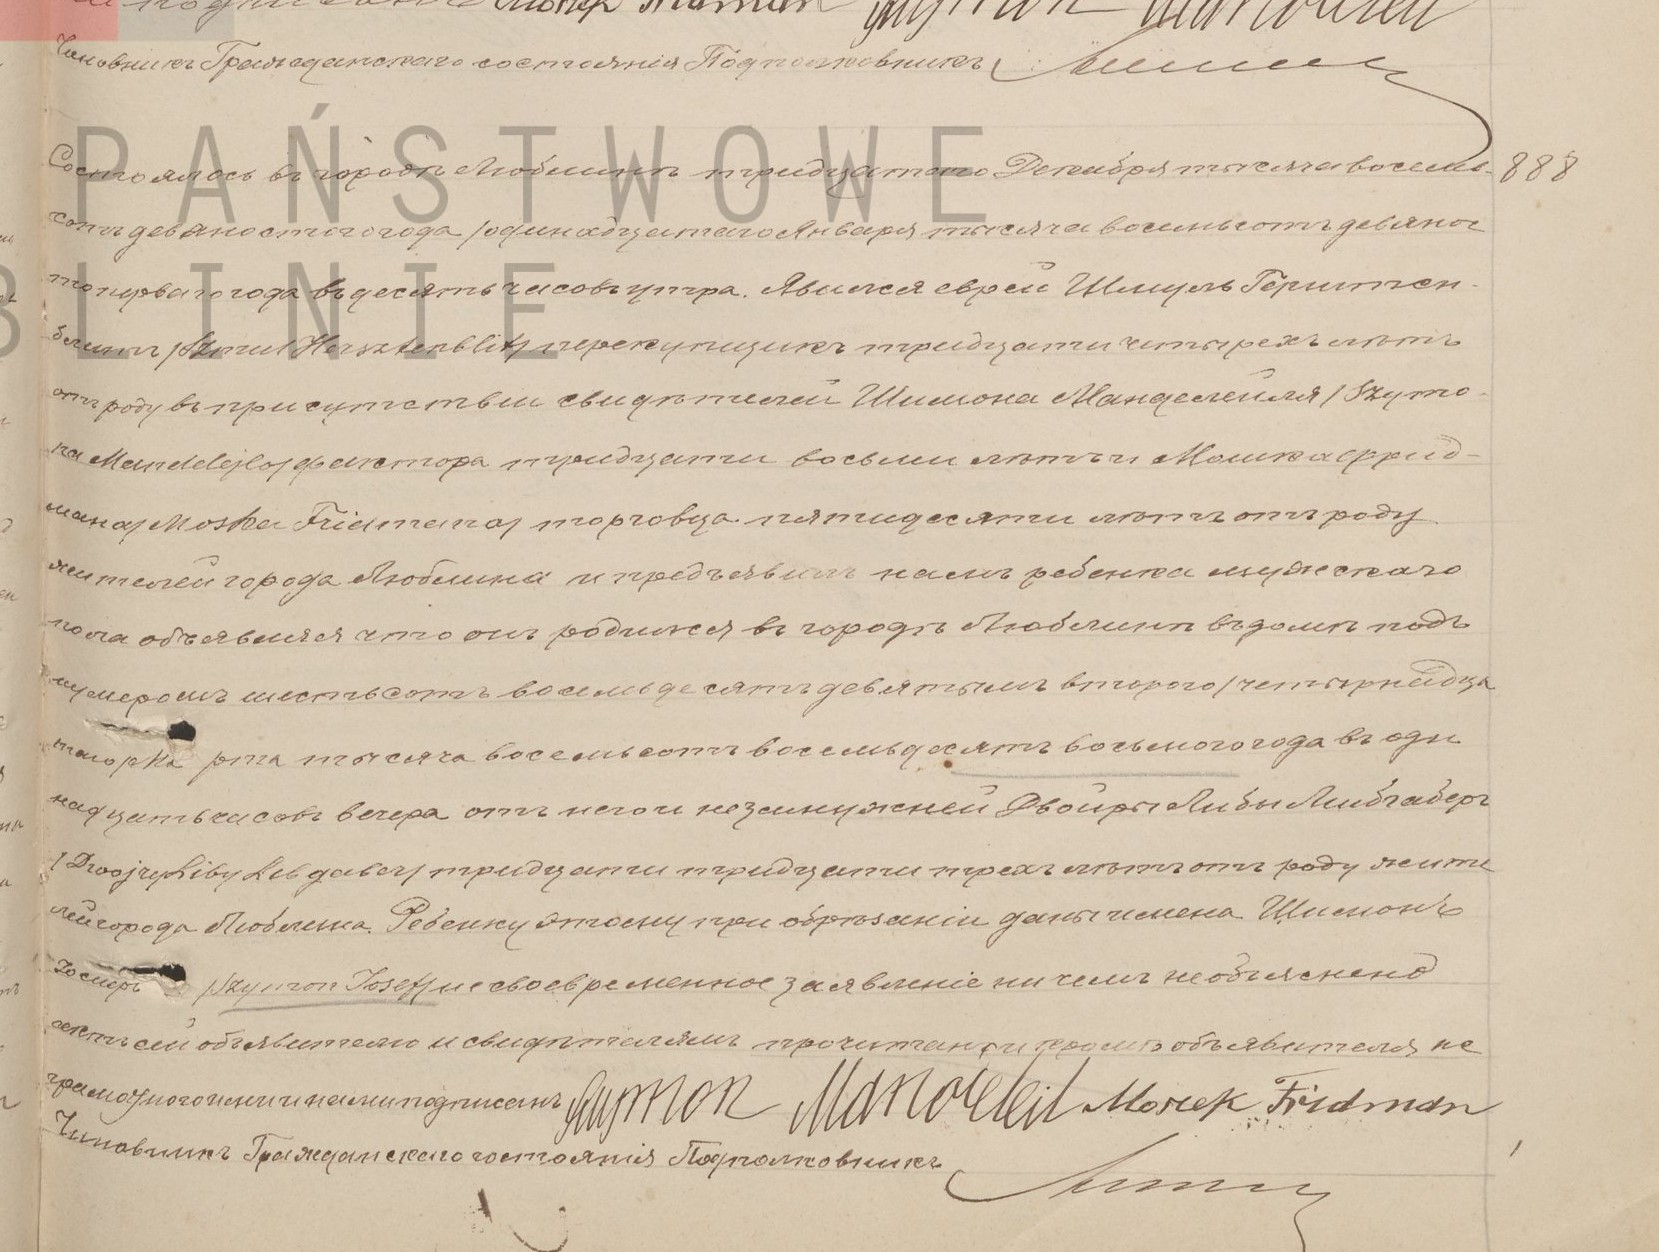 Morek Fridman Szymon Mandeleil
Чиновникъ Гражданскаго состоянія Подполковникъ
PAŃSTWOWE
Состоялось въ городѣ Люблинѣ тридцатого Декабря тысяча восемь- 888
сотъ девяностого года /одинадцатаго Января тысяча восемьсотъ девяно
BLINIE
то перваго года въ десять часовъ утра. Явился еврей Шмуль Герштен-
блитъ /Szmul Hersztenblit/ перекупщикъ тридцати четырехъ лѣтъ
отъ роду въ присутствіи свидѣтелей Шимона Манделейля /Szymo-
na Mandelejla/ фактора тридцати восьми лѣтъ и Мошка Фрид-
мана /Moszka Fridmana/ торговца пятидесяти лѣтъ отъ роду
жителей города Люблина и предъявилъ намъ ребенка мужскаго
пола объявляя что онъ родился въ городѣ Люблинѣ въ домѣ подъ
нумеромъ шестьсотъ восемьдесятъ девятымъ второго /четырнадца
таго/ Ма рта тысяча восемьсотъ восемьдесятъ восьмого года въ оди
надцать часовъ вечера отъ него и незамужней Двойры Либы Либгаберъ
/Dwojry Liby Libgaber/ тридцати тридцати трехъ лѣтъ отъ роду жите
лей города Люблина. Ребенку этому при обрѣзаніи даны имена Шимонъ
Іосифъ /Szymon Josef/ несвоевременное заявленіе ничемъ необъяснено
актъ сей объявителю и свидѣтелямъ прочитанъ и кромѣ объявителя не
грамотного ими и нами подписанъ Szymon Mandeleil Morek Fridman
Чиновникъ Гражданскаго состоянія Подполковникъ